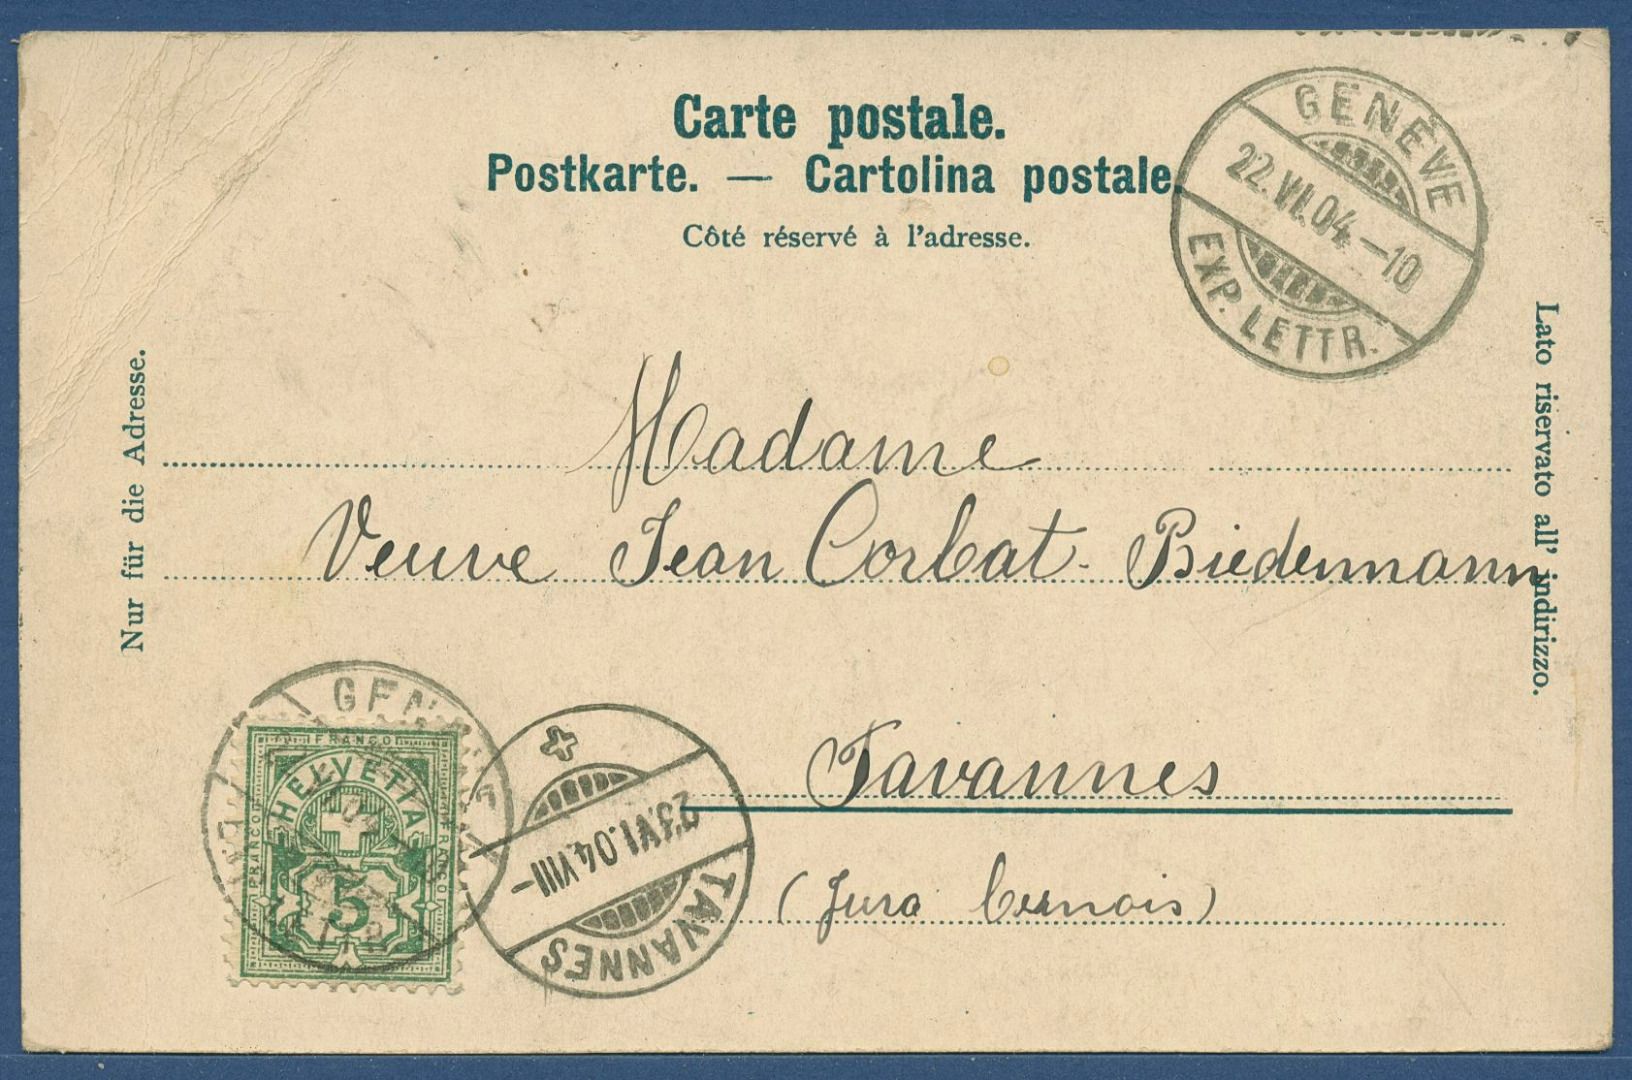 Carte postale.
Postkarte. — Cartolina postale.
Côté réservé à l'adresse.
GENÈVE
22.VI.04.-10
EXP. LETTR.
Nur für die Adresse.
Lato riservato all' indirizzo.
Madame
Veuve Jean Corbat-Biedermann
Tavannes
(Jura bernois)
GEN
FRANCO
HELVETIA
FRANCO
FRANCO
5
23.VI.04.VIII-
TAVANNES